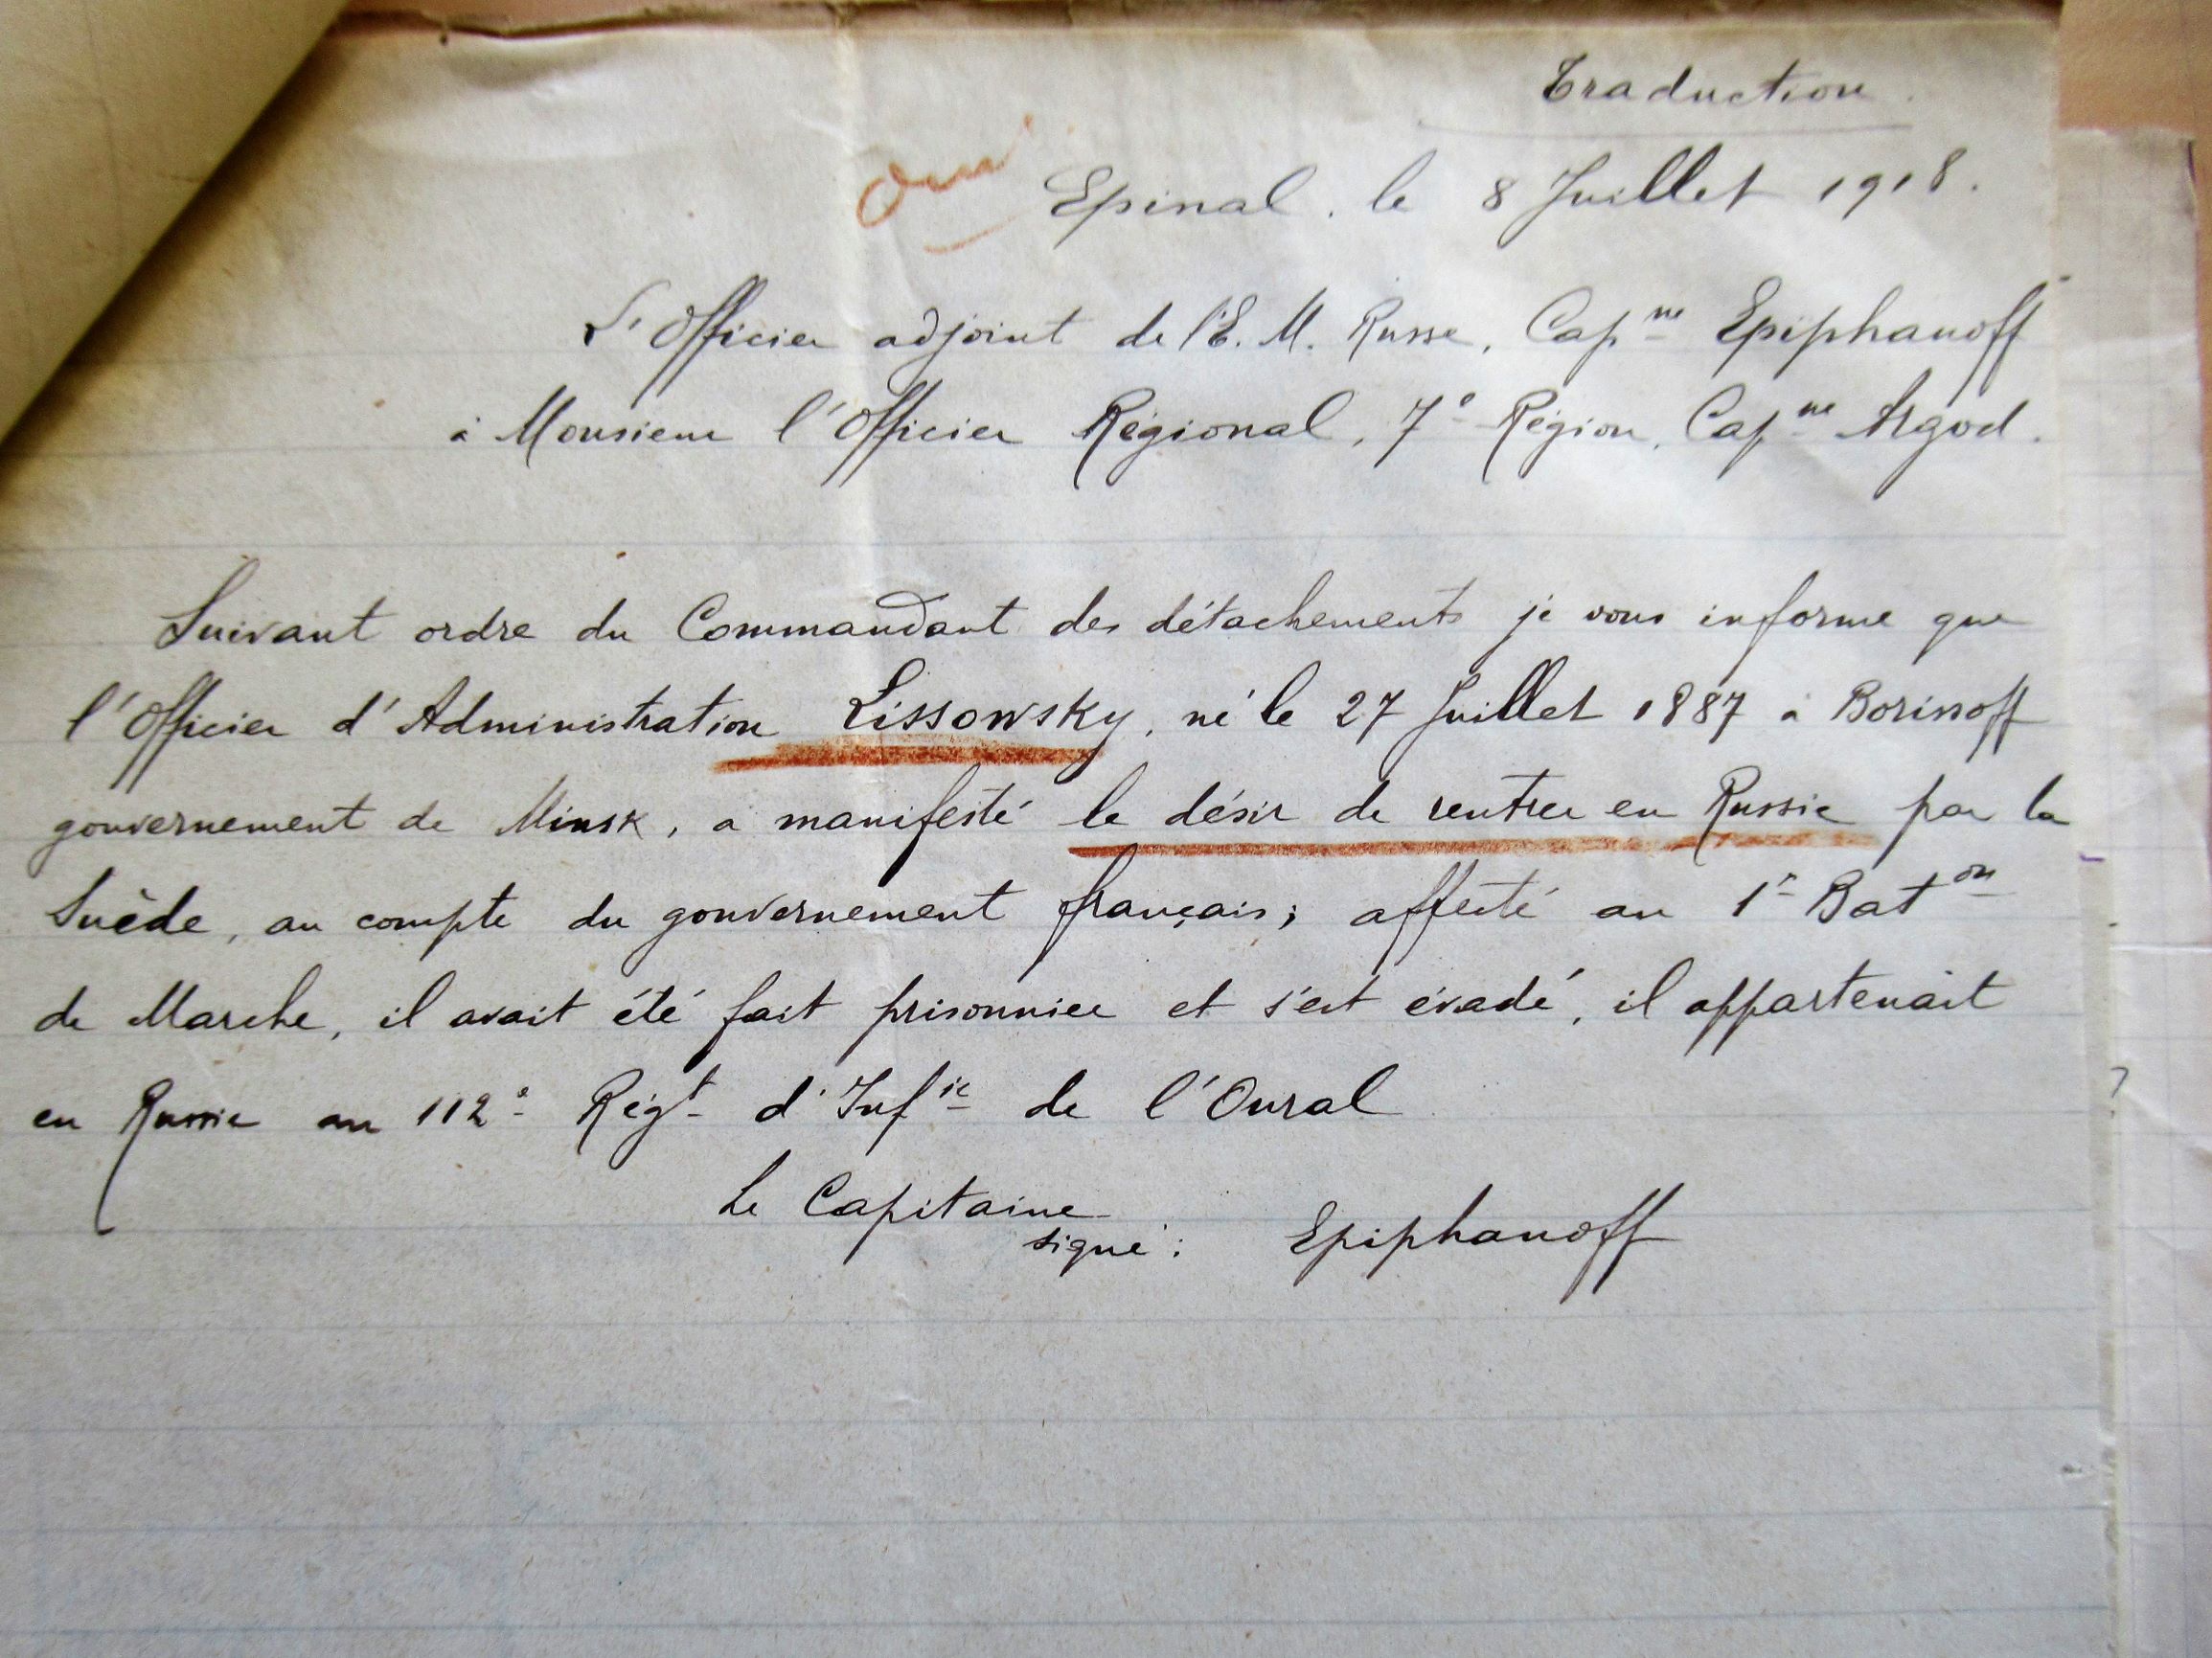 Traduction.
oui
Epinal. le 8 Juillet 1918.
L'Officier adjoint de l'E. M. Russe, Cap^ne Epiphanoff
à Monsieur l'Officier Régional, 7e Région, Cap^ne Argod.
Suivant ordre du Commandant des détachements je vous informe que
l'Officier d'Administration Lissowsky, né le 27 Juillet 1887 à Borissoff
gouvernement de Minsk, a manifesté le désir de rentrer en Russie par la
Suède, au compte du gouvernement français; affecté au 1r Bat^on
de Marche, il avait été fait prisonnier et s'est évadé, il appartenait
en Russie au 112e Régt d'Inf^ie de l'Oural
Le Capitaine
signé: Epiphanoff
?